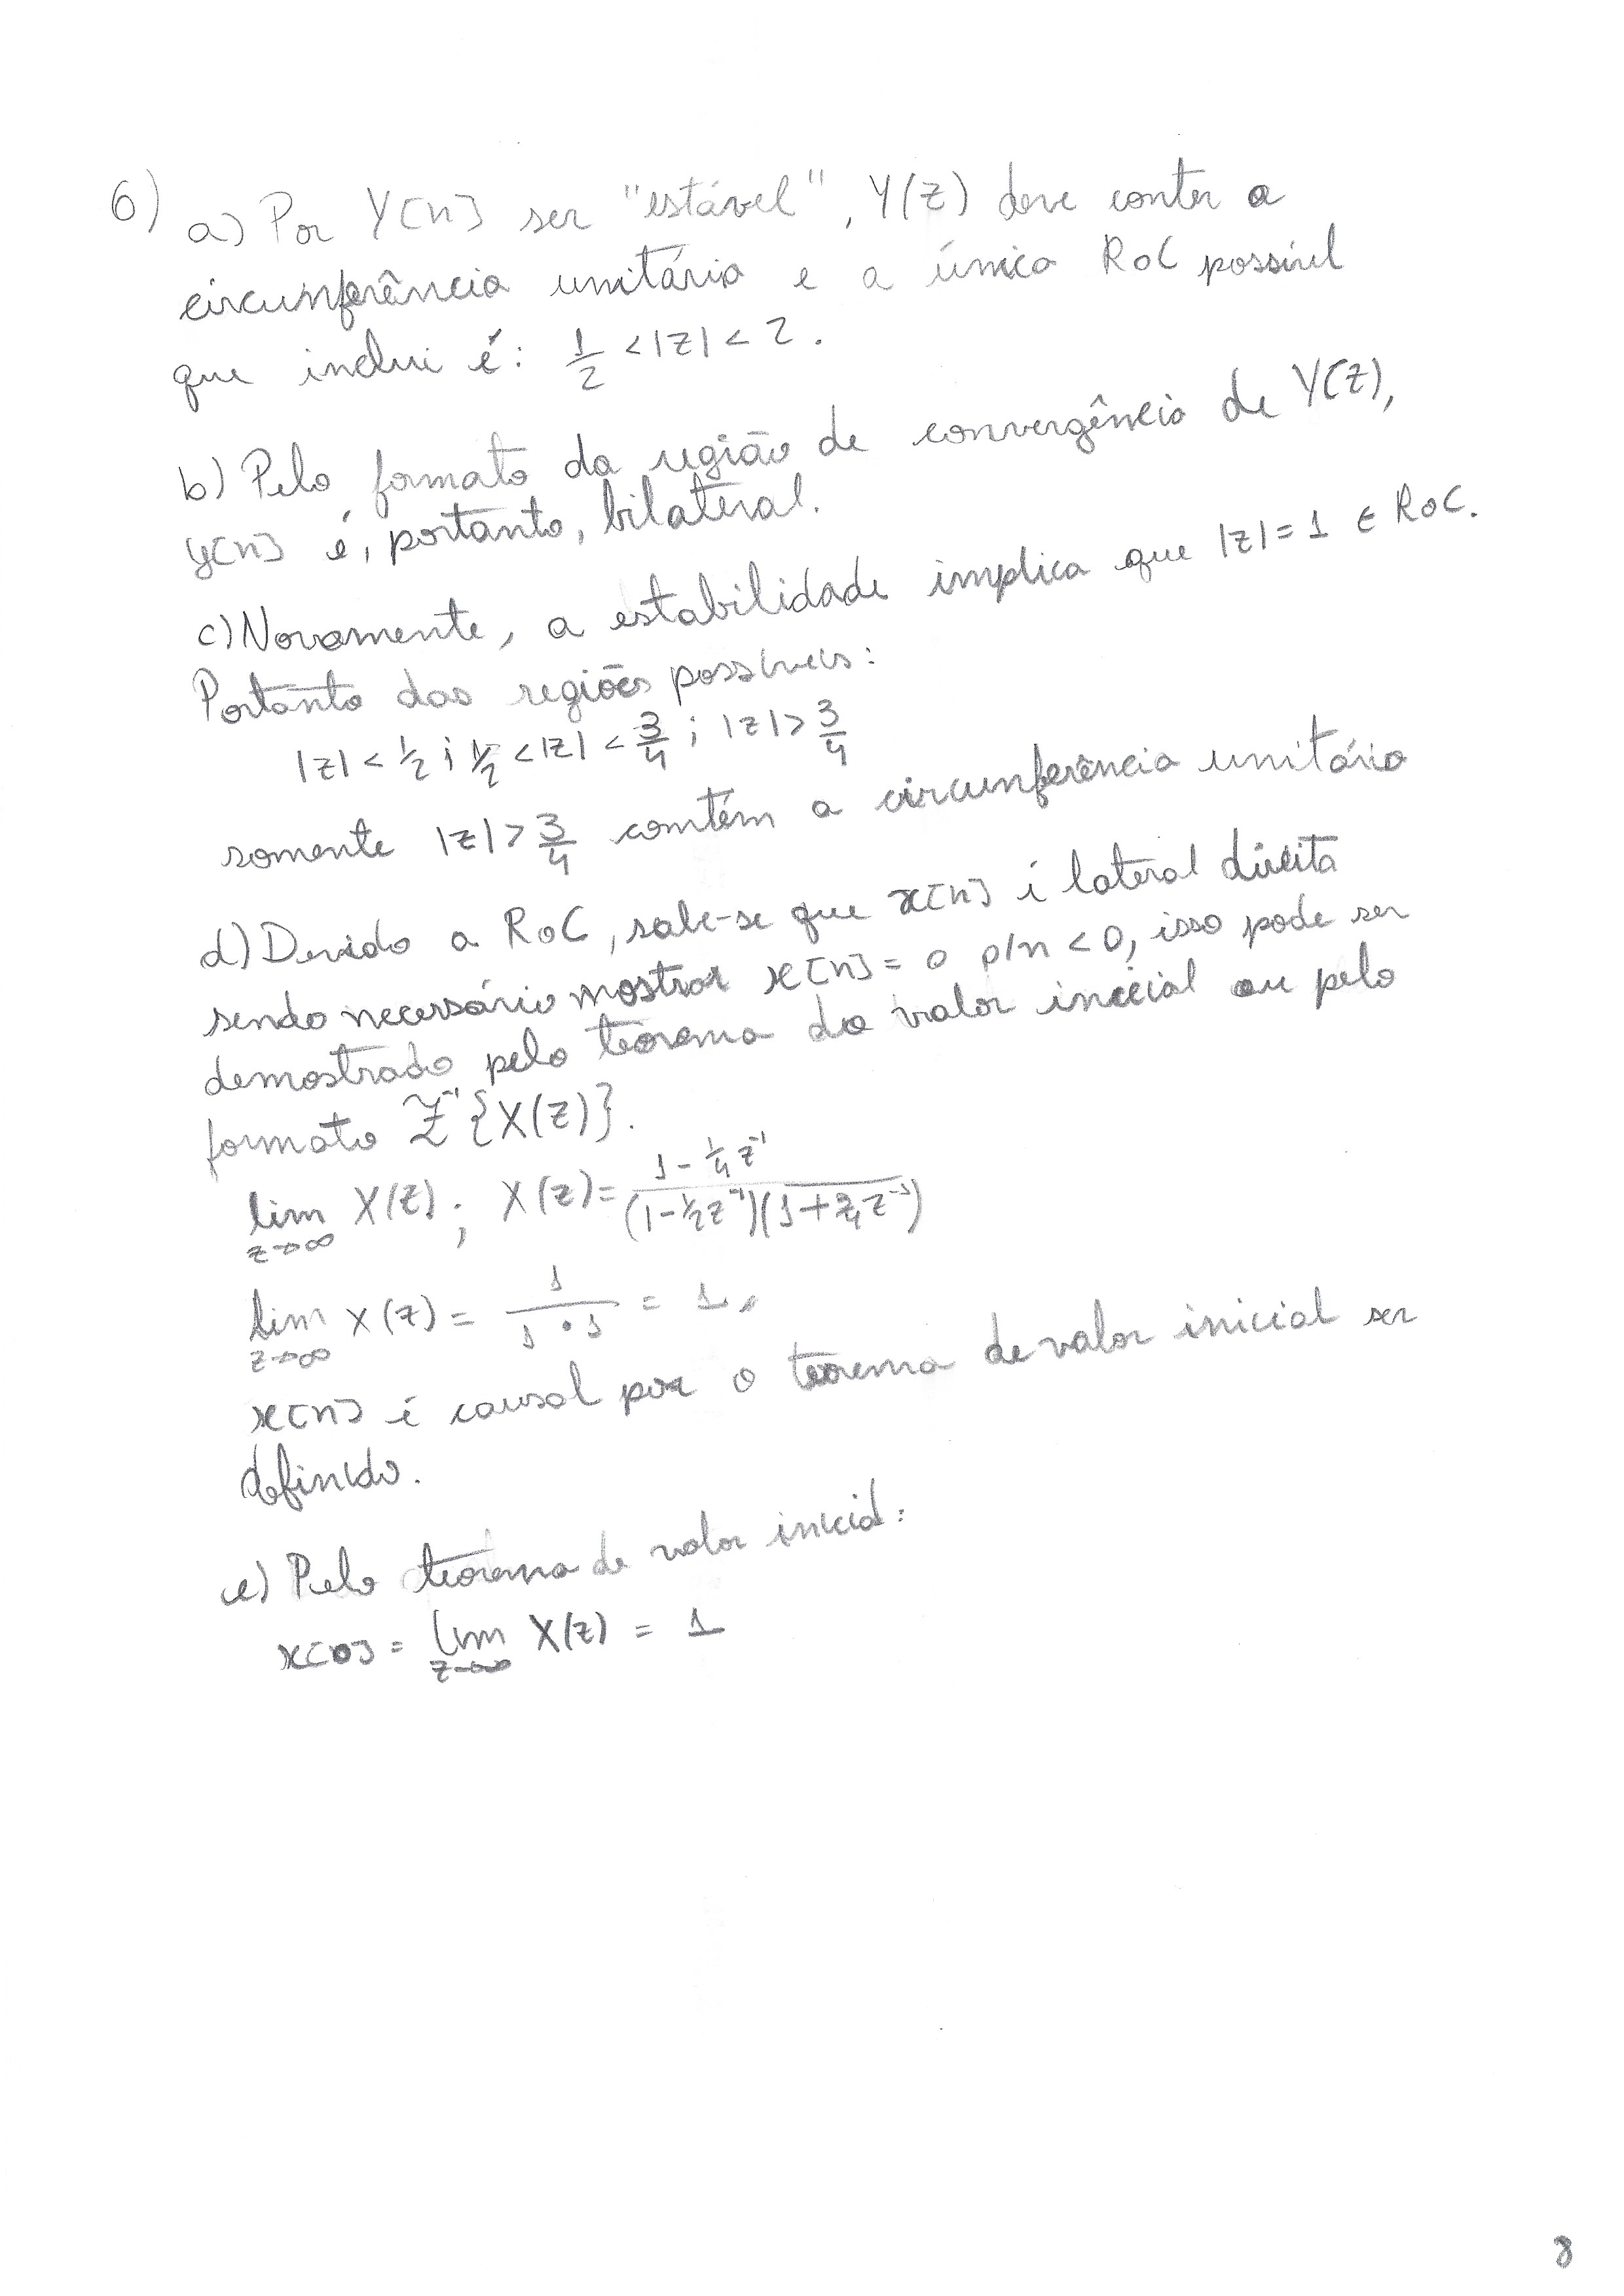 6) a) Por Y[n] ser "estável", Y(z) deve conter a
circunferência unitária e a única RoC possível
que inclui é: 1/2 < |z| < 2.
b) Pelo formato da região de convergência de Y(z),
y[n] é, portanto, bilateral.
c) Novamente, a estabilidade implica que |z| = 1 ∈ RoC.
Portanto das regiões possíveis:
|z| < 1/2 ; 1/2 < |z| < 3/4 ; |z| > 3/4
somente |z| > 3/4 contém a circunferência unitária
d) Devido a RoC, sabe-se que x[n] é lateral direita
sendo necessário mostrar x[n] = 0 p/ n < 0, isso pode ser
demostrado pelo teorema do valor inicial ou pelo
formato Z⁻¹{X(z)}.
lim z→∞ X(z) ; X(z) = (1 - 1/4 z⁻¹) / ((1 - 1/2 z⁻¹)(1 + 3/4 z⁻¹))
lim z→∞ X(z) = 1 / (1 · 1) = 1 //
x[n] é causal por o teorema de valor inicial ser
definido.
e) Pelo teorema de valor inicial:
x[0] = lim z→∞ X(z) = 1
8